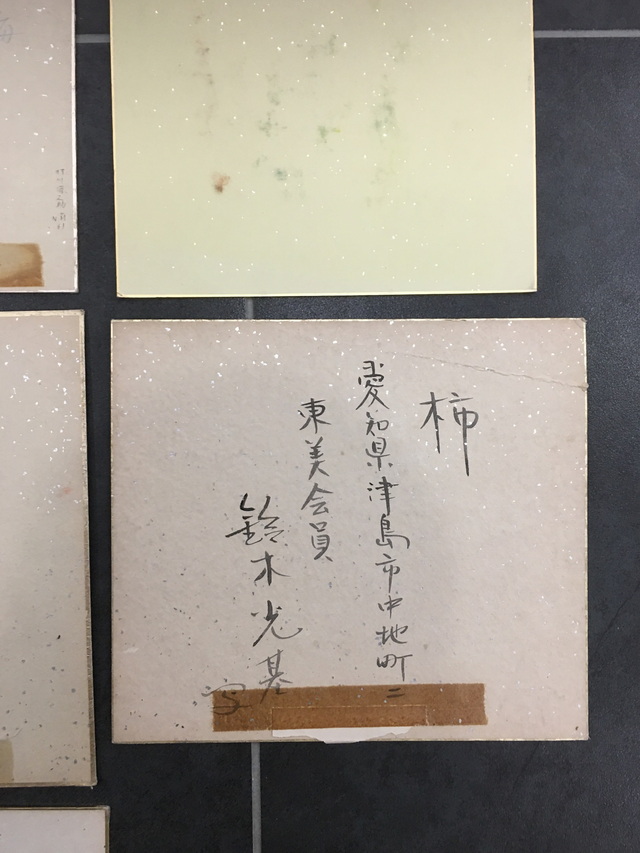 柿
愛知県津島市中地町二
東美会員
鈴木光基